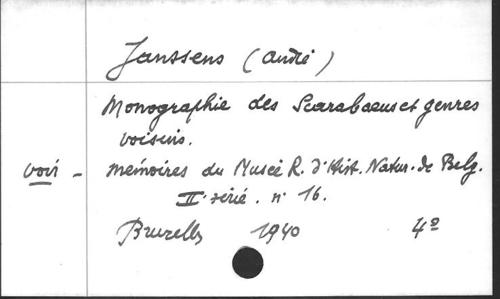 Janssens (André)
Monographie des Scarabaeus et genres
voisins.
voir - Mémoires du Musée R. d'Hist. Natur. de Belg.
II° série. n° 16.
Bruxelles 1940 4°